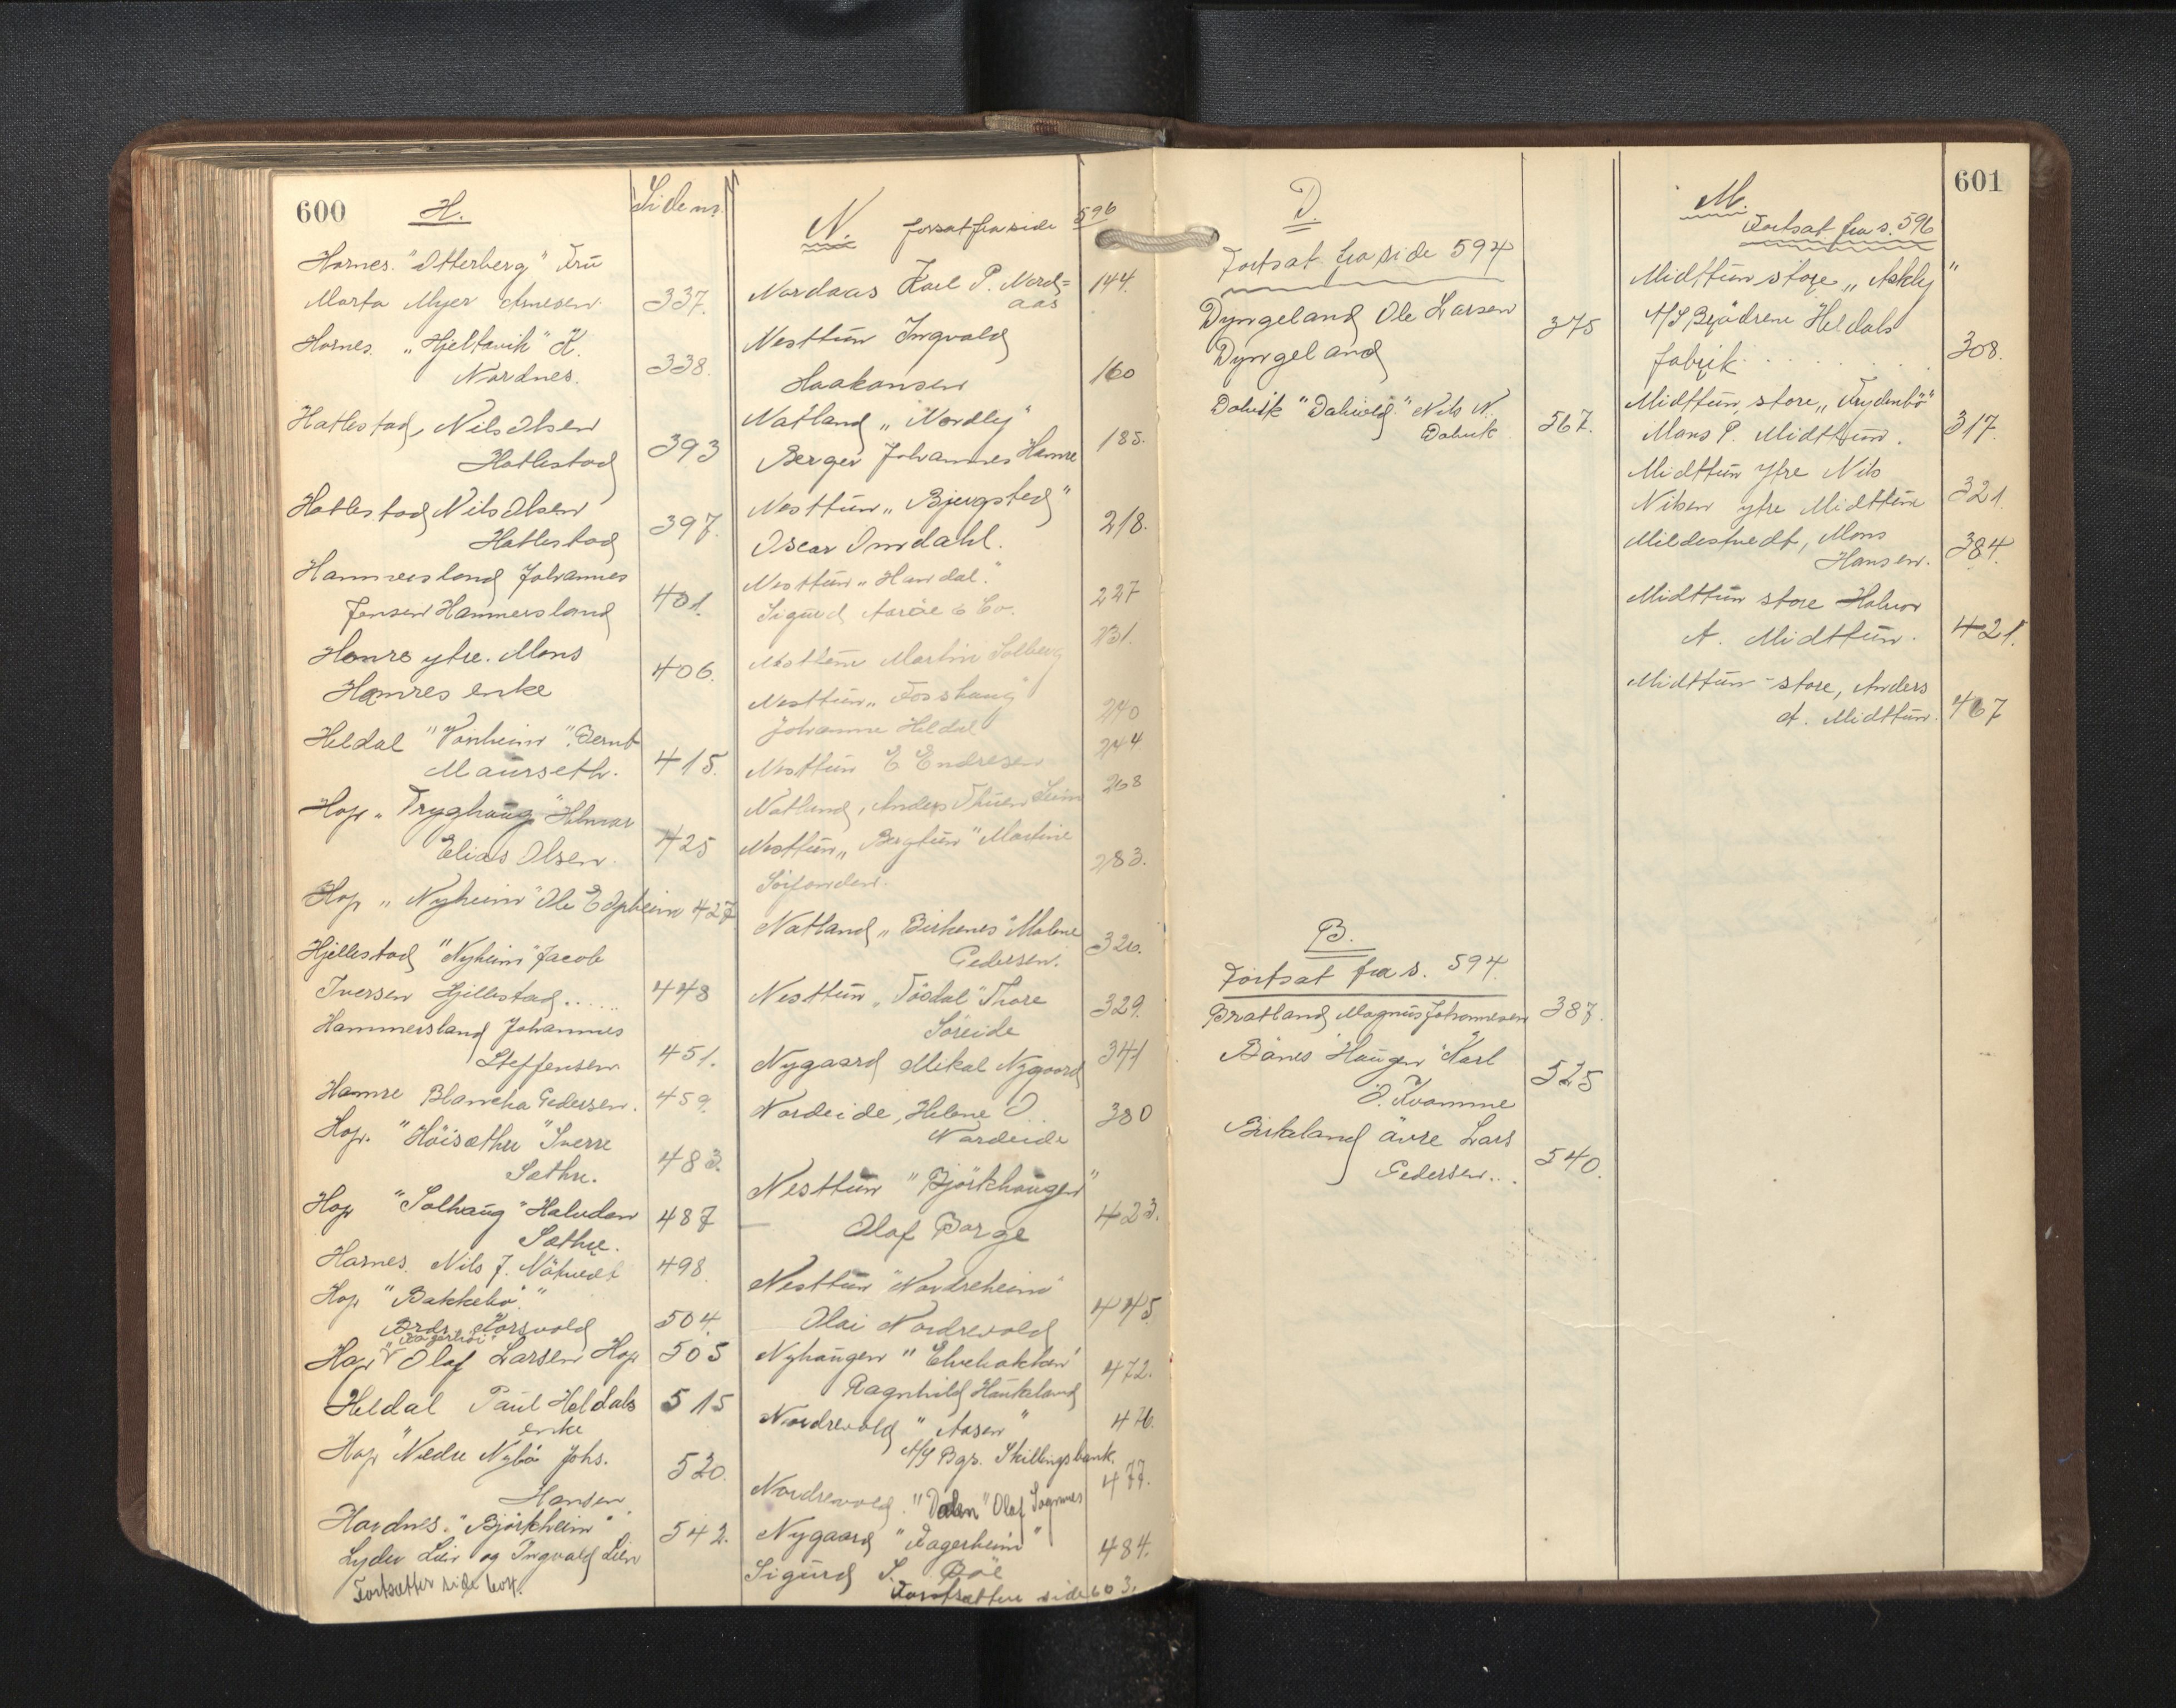 600
H.
Side nr.
Hornes. "Otterberg" Fru
Marta Myer Arnesen. 337.
Hornes. "Hjeltavik" K.
Nordnes. 338.
Hatlestad, Nils Olsen
Hatlestad 393
Hatlestad Nils Olsen
Hatlestad 397.
Hammersland Johannes
Jensen Hammersland 401.
Hamre ytre. Mons
Hamres enke 406.
Heldal "Vonheim" Bernt
Maurseth. 415.
Hop. "Tryghaug" Hilmar
Elias Olsen. 425
Hop "Nyheim" Ole E Opheim 427
Hjellestad "Nyheim" Jacob
Iversen Hjellestad...... 448
Hammersland Johannes
Steffensen 451.
Hamre Blancha Pedersen. 459.
Hop. "Höisæther" Sverre
Sæthre. 483.
Hop "Solhaug" Halvdan
Sæthre. 487
Hornes. Nils J. Nätvedt 498.
Hop "Bakkebö."
Brdr. Korsvold 504.
"Fagerhöi"
Hop Olaf Larsen Hop 505
Heldal Paul Heldals
enke 515
Hop "Nedre Nybö Johs.
Hansen 520.
Hordnes. "Björkheim"
Lyder Lien og Ingvald Lien 542.
Fortsætter side 604.
N. forsat fra side 596
Nordaas Karl P. Nord=
aas 144.
Nesttun Ingvald
Haakonsen 160
Natland "Nordly"
Berger Johannes Hamre 185.
Nesttun "Bjergsted"
Oscar Omdahl. 218.
Nesttun "Haudal."
Sigurd Aaröe & Co. 227
Nesttun Martin Solberg 231.
Nesttun "Fosshaug"
Johanne Heldal 240
Nesttun E Endresen 244
Natland, Anders Thuen Seim 268
Nesttun "Bergtun" Martine
Söifonden. 283.
Natland "Birkenes" Malene
Pedersen. 326.
Nesttun "Fosdal" Thore
Söreide 329.
Nygaard Mikal Nygaard 341
Nordeide, Helene O.
Nordeide 380
Nesttun "Björkhaugen"
Olaf Borge 423.
Nesttun "Nordreheim"
Olai Nordrevold 445.
Nyhaugen "Elvebakken"
Ragnhild Haukeland 472.
Nordrevold "Aasen" 476.
A/S Bgs. Skillingsbank.
Nordrevold. "Dalen" Olaf Sognnes 477.
Nygaard "Fagerheim"
Sigurd S. Böe 484.
Fortsættes side 603.
D.
Fortsat fra side 594
Dyngeland Ole Larsen
Dyngeland 375
Dolvik "Dalvold." Nils N.
Dolvik 567.
B.
Fortsat fra s. 594.
Bratland Magnus Johannesen 387.
Bönes "Haugen" Karl
O. Kvamme 525
Birkeland övre Lars
Pedersen... 540.
601
M.
Fortsat fra s. 596
Midttun store "Askly"
A/S Brödrene Heldals
fabrik...... 308.
Midttun, store "Frydenbö"
Mons P. Midttun. 317.
Midttun Ytre Nils
Nilsen ytre Midttun 321.
Mildestvedt, Mons
Hansen. 384.
Midttun store Halvor
A. Midttun. 421.
Midttun - store, Anders
A. Midttun. 467